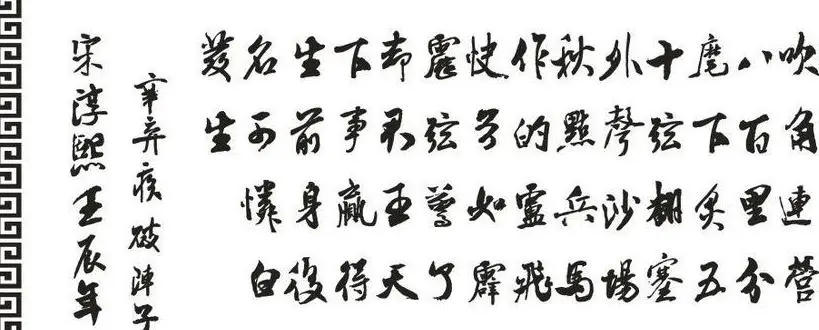 吹角連營
八百里分
麾下炙五
十弦翻塞
外聲沙場
秋點兵馬
作的盧飛
快弓如霹
靂弦驚了
却君王天
下事贏得
生前身後
名可憐白
發生
辛弃疾破陣子
宋淳熙壬辰年